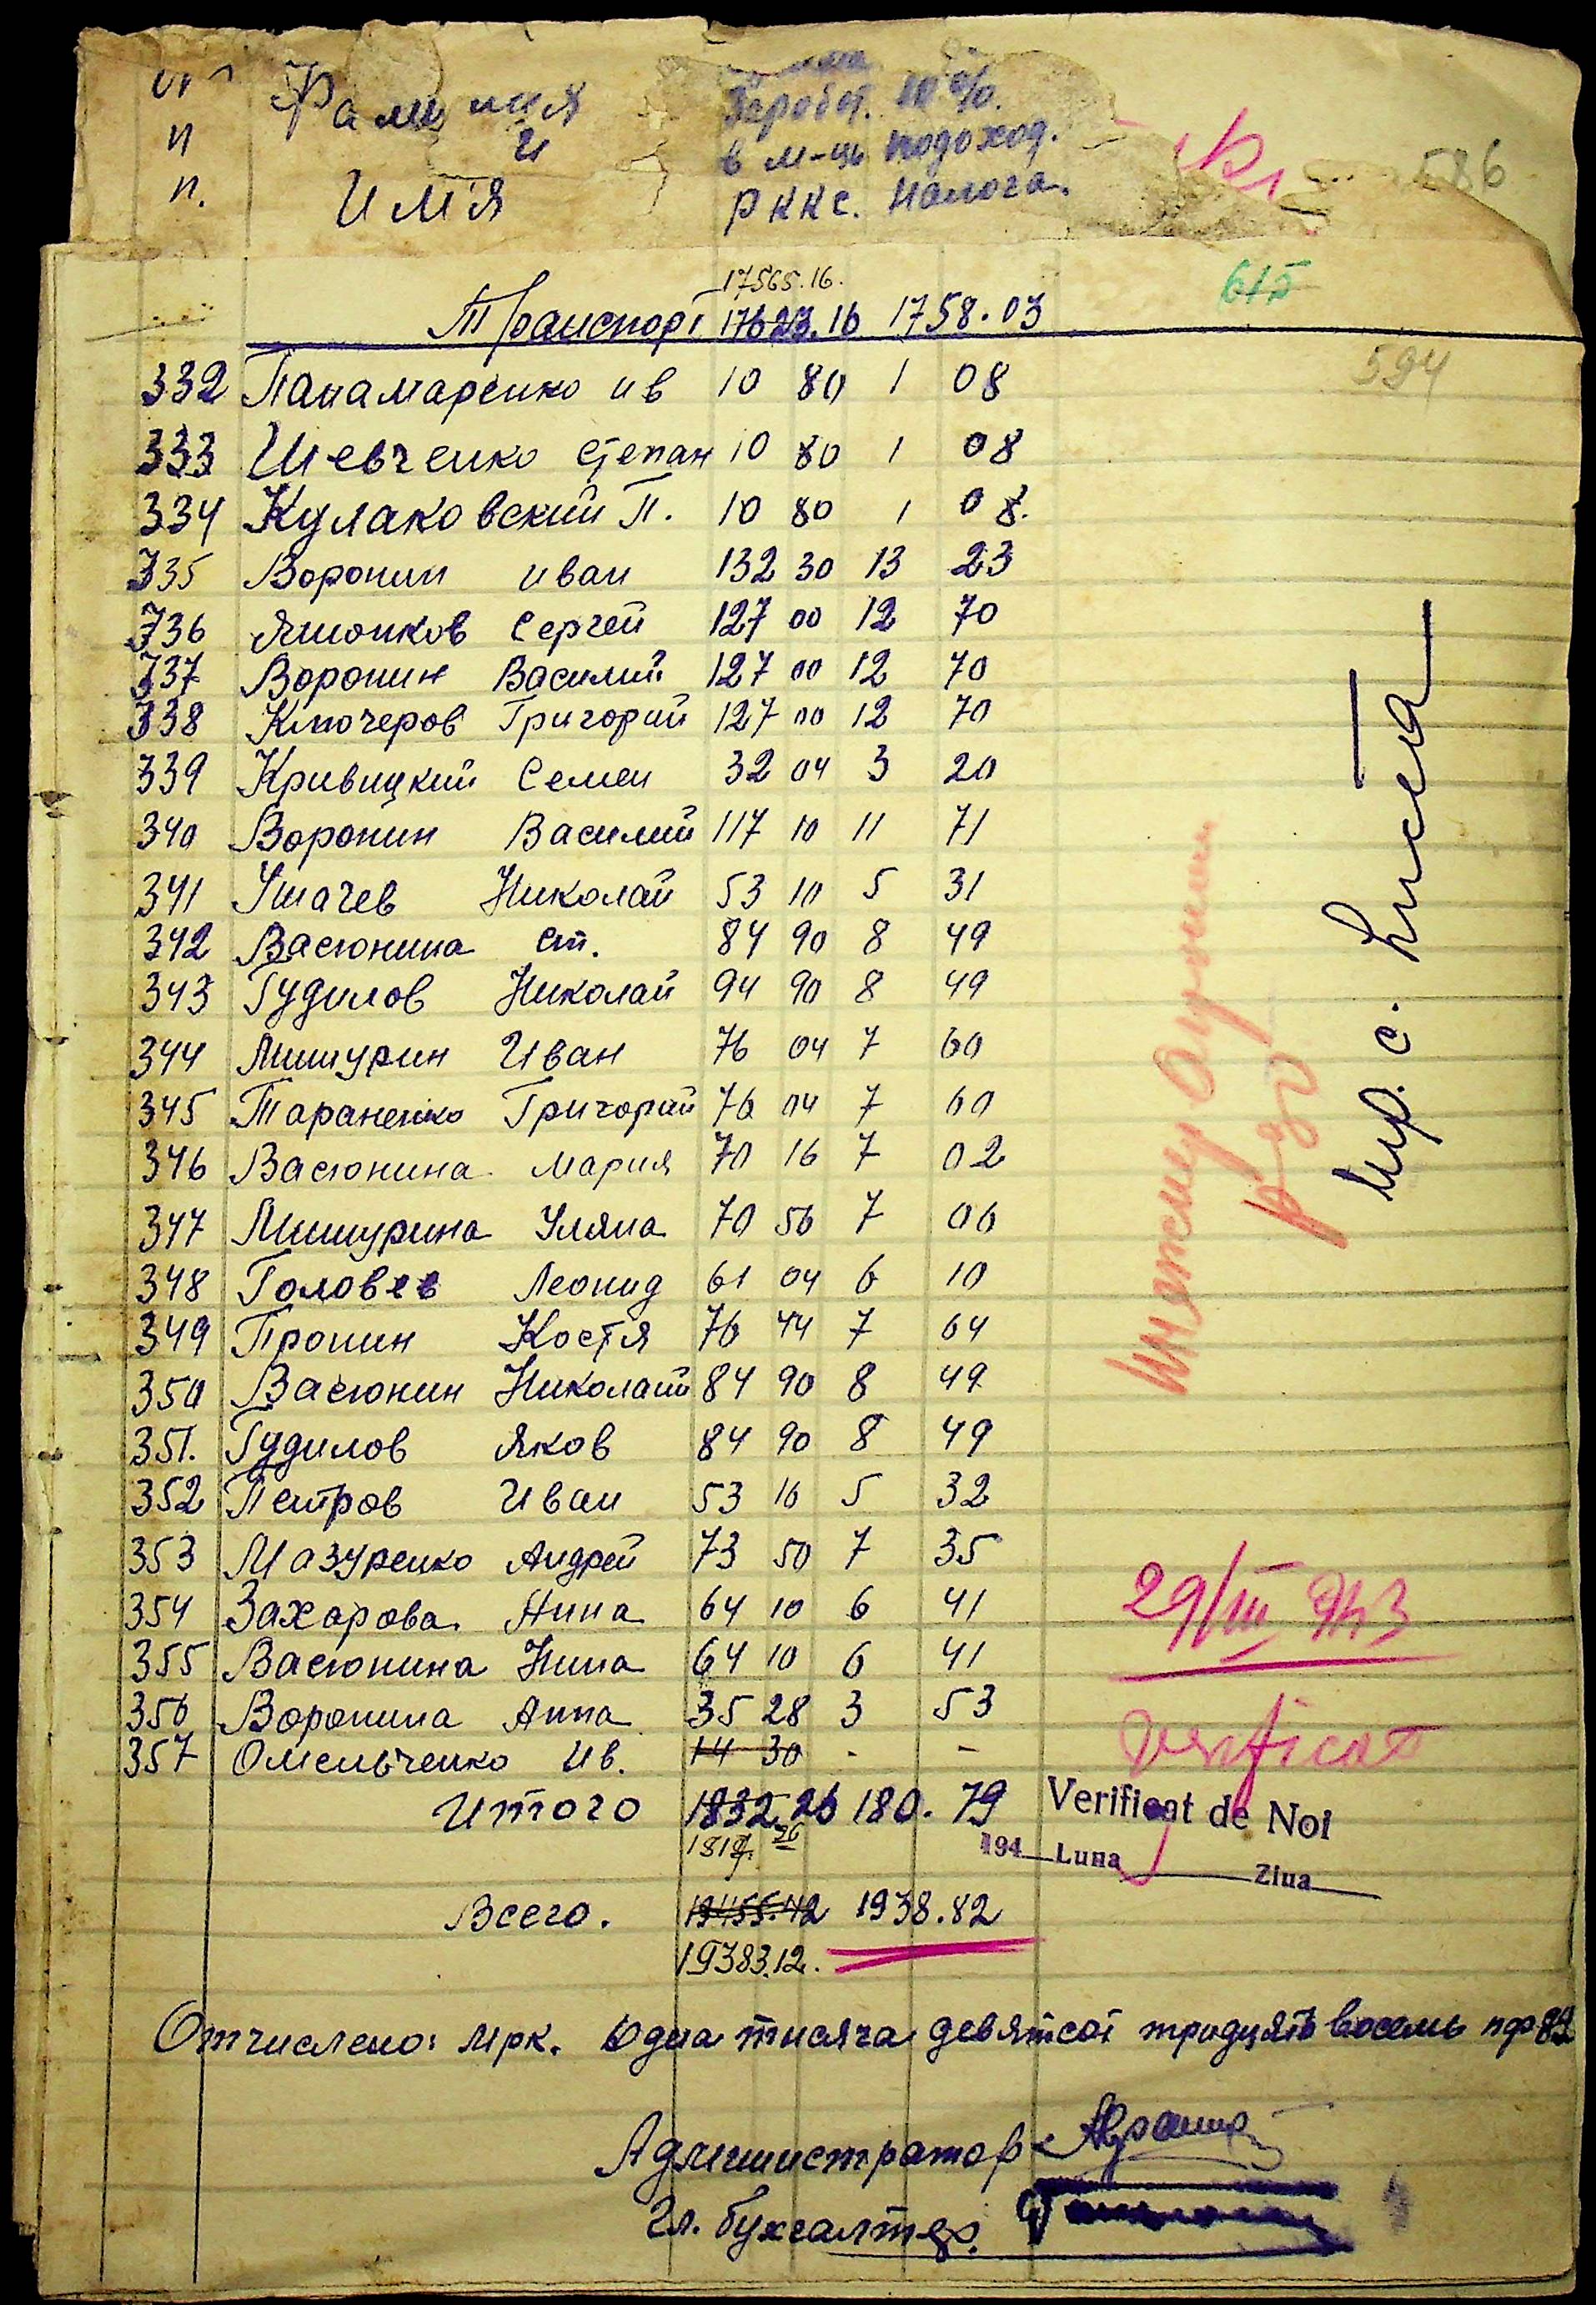 № Фамилия Заработ. 10%
п и в м-це подоход.
п. Имя РККС. налога.
586
615
17565.16.
Транспорт 17623.16 1758.03
594
332 Панамаренко ив 10 80 1 08
333 Шевченко Степан 10 80 1 08
334 Кулаковский П. 10 80 1 08.
335 Воронин иван 132 30 13 23
336 Сергей 127 00 12 70
337 Воронин Василий 127 00 12 70
338 Ключеров Григорий 127 00 12 70
339 Кривицкий Семен 32 04 3 20
340 Воронин Василий 117 10 11 71
341 Ушачев Николай 53 10 5 31
342 Васюнина ст. 84 90 8 49
343 Гудилов Николай 94 90 8 49
344 Мишурин Иван 76 04 7 60
345 Тараненко Григорий 76 04 7 60
346 Васюнина Мария 70 16 7 02
347 Мишурина Уляна 70 56 7 06
348 Головев Леонид 61 04 6 10
349 Пронин Костя 76 44 7 64
350 Васюнин Николай 84 90 8 49
351. Гудилов Яков 84 90 8 49
352 Петров Иван 53 16 5 32
353 Мазуренко Андрей 73 50 7 35
354 Захарова Нина 64 10 6 41
355 Васюнина Нина 64 10 6 41
356 Воронина Анна 35 28 3 53
357 Омельченко Ив. 14 30 - -
Итого 1832.26 180.79
1817. 96
Всего. 19455.42 1938.82
19383.12.
29/III 943
Verificat
Verificat de Noi
194 Luna Ziua
Отчислено: мрк. Одна тисяча девятсот тридцять восемь пф 82
Администратор
Гл. бухгалтер.